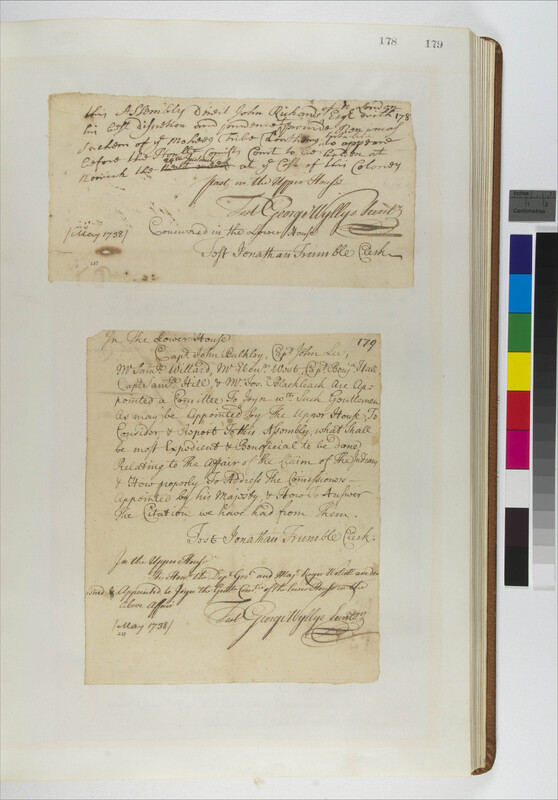 178 179
This Assembly Direct John Richards of N. London Esqr with 178
his best discretion and prudence provide Benj
Sachem of ye Tribe to appear
before the Court to be holden at
Norwich the at ye Cost of this Colony
past in the Upper House
Test George Wyllys Secrety
[May 1738]
Concurred in the Lower House
Test Jonathan Trumble Clerk
In The Lower House 179
Capt. John Bulkley, Capt John Lee,
Mr Samll Willard, Mr West, Capt Benjn Hall
Capt Samll Hill, & Mr Jos. Blachleach Are Ap-
pointed a Comittee To Joyn wth Such Gentlemen
as may be Appointed by the Upper House To
Consider & Report To this Assembly, what shall
be most Expedient & Beneficial to be done
Relating to the Affair of the Claim of The Indians
& How properly To Address The Comissioners
Appointed by his Majesty & How to Answer
The Citation we have had from Them.
Test Jonathan Trumble Clerk.
In the Upper House
The Honble the Depty Govr and Majr Roger Wolcott are
& Appointed to Joyn the Comtee of the lower House in the
above Affair
Test George Wyllys Secretry
[May 1738]